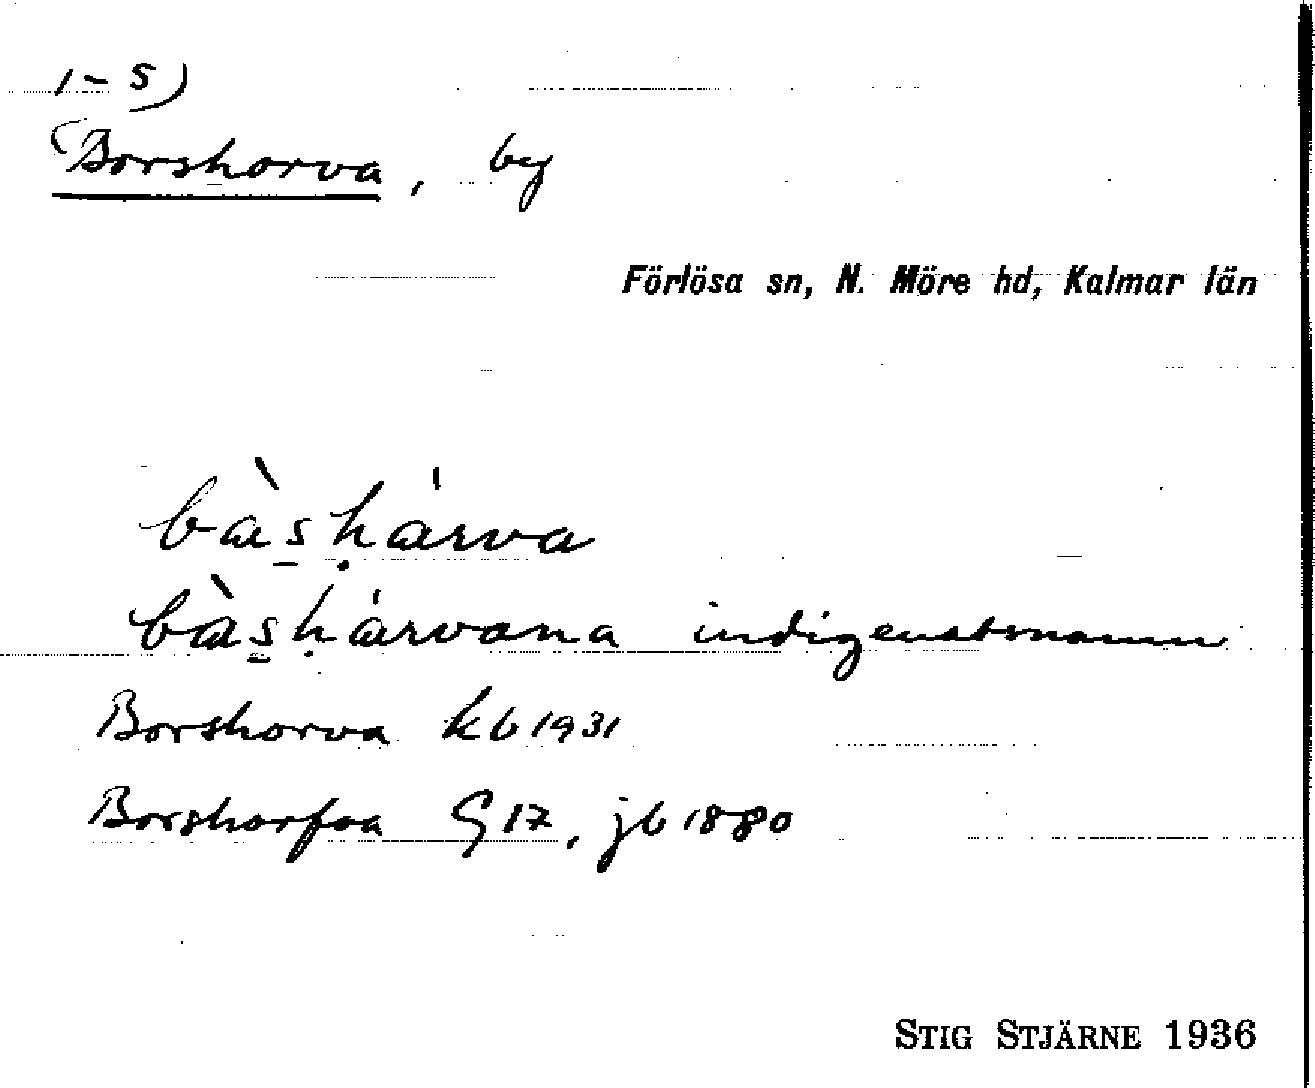 1-5)
Borshorva, by
Förlösa sn, N. Möre hd, Kalmar län
bàs̱ḥárva
bàs̱ḥárvana indigenatsnamn
Borshorva kb 1931
Borshorfva G 17, jb 1880
STIG STJÄRNE 1936